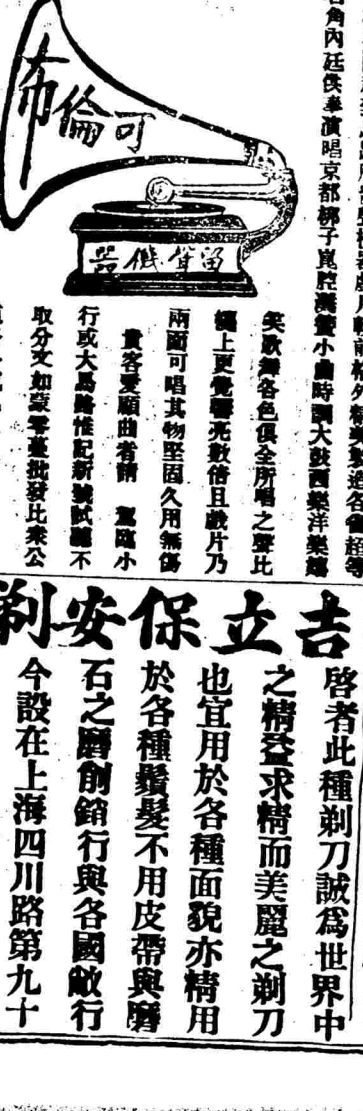 可倫布
留聲機器
角內廷供奉演唱京都梆子崑腔灘簧小曲時調大鼓西樂洋樂嬉
笑歌舞各色俱全所唱之聲比
機上更覺響亮數倍且戲片乃
兩面可唱其物堅固久用無傷
貴客愛顧曲者請 駕臨小
行或大馬路惟記新號試聽不
取分文如蒙零躉批發比衆公
吉立保安剃
啓者此種剃刀誠爲世界中
之精益求精而美麗之剃刀
也宜用於各種面貌亦精用
於各種鬚髮不用皮帶與磨
石之磨創銷行與各國敝行
今設在上海四川路第九十